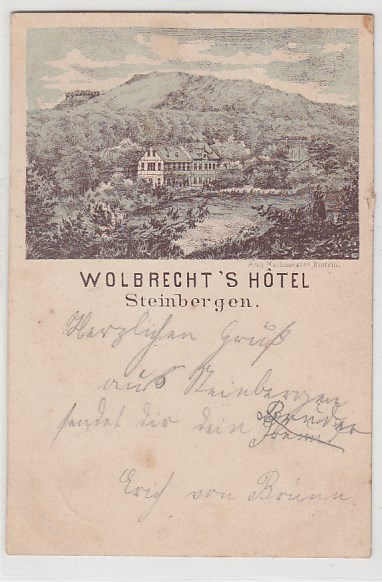 WOLBRECHT'S HÔTEL
Steinbergen.
Herzlichen Gruß
aus Steinbergen
sendet dir dein Bruder
Erich von Brunn